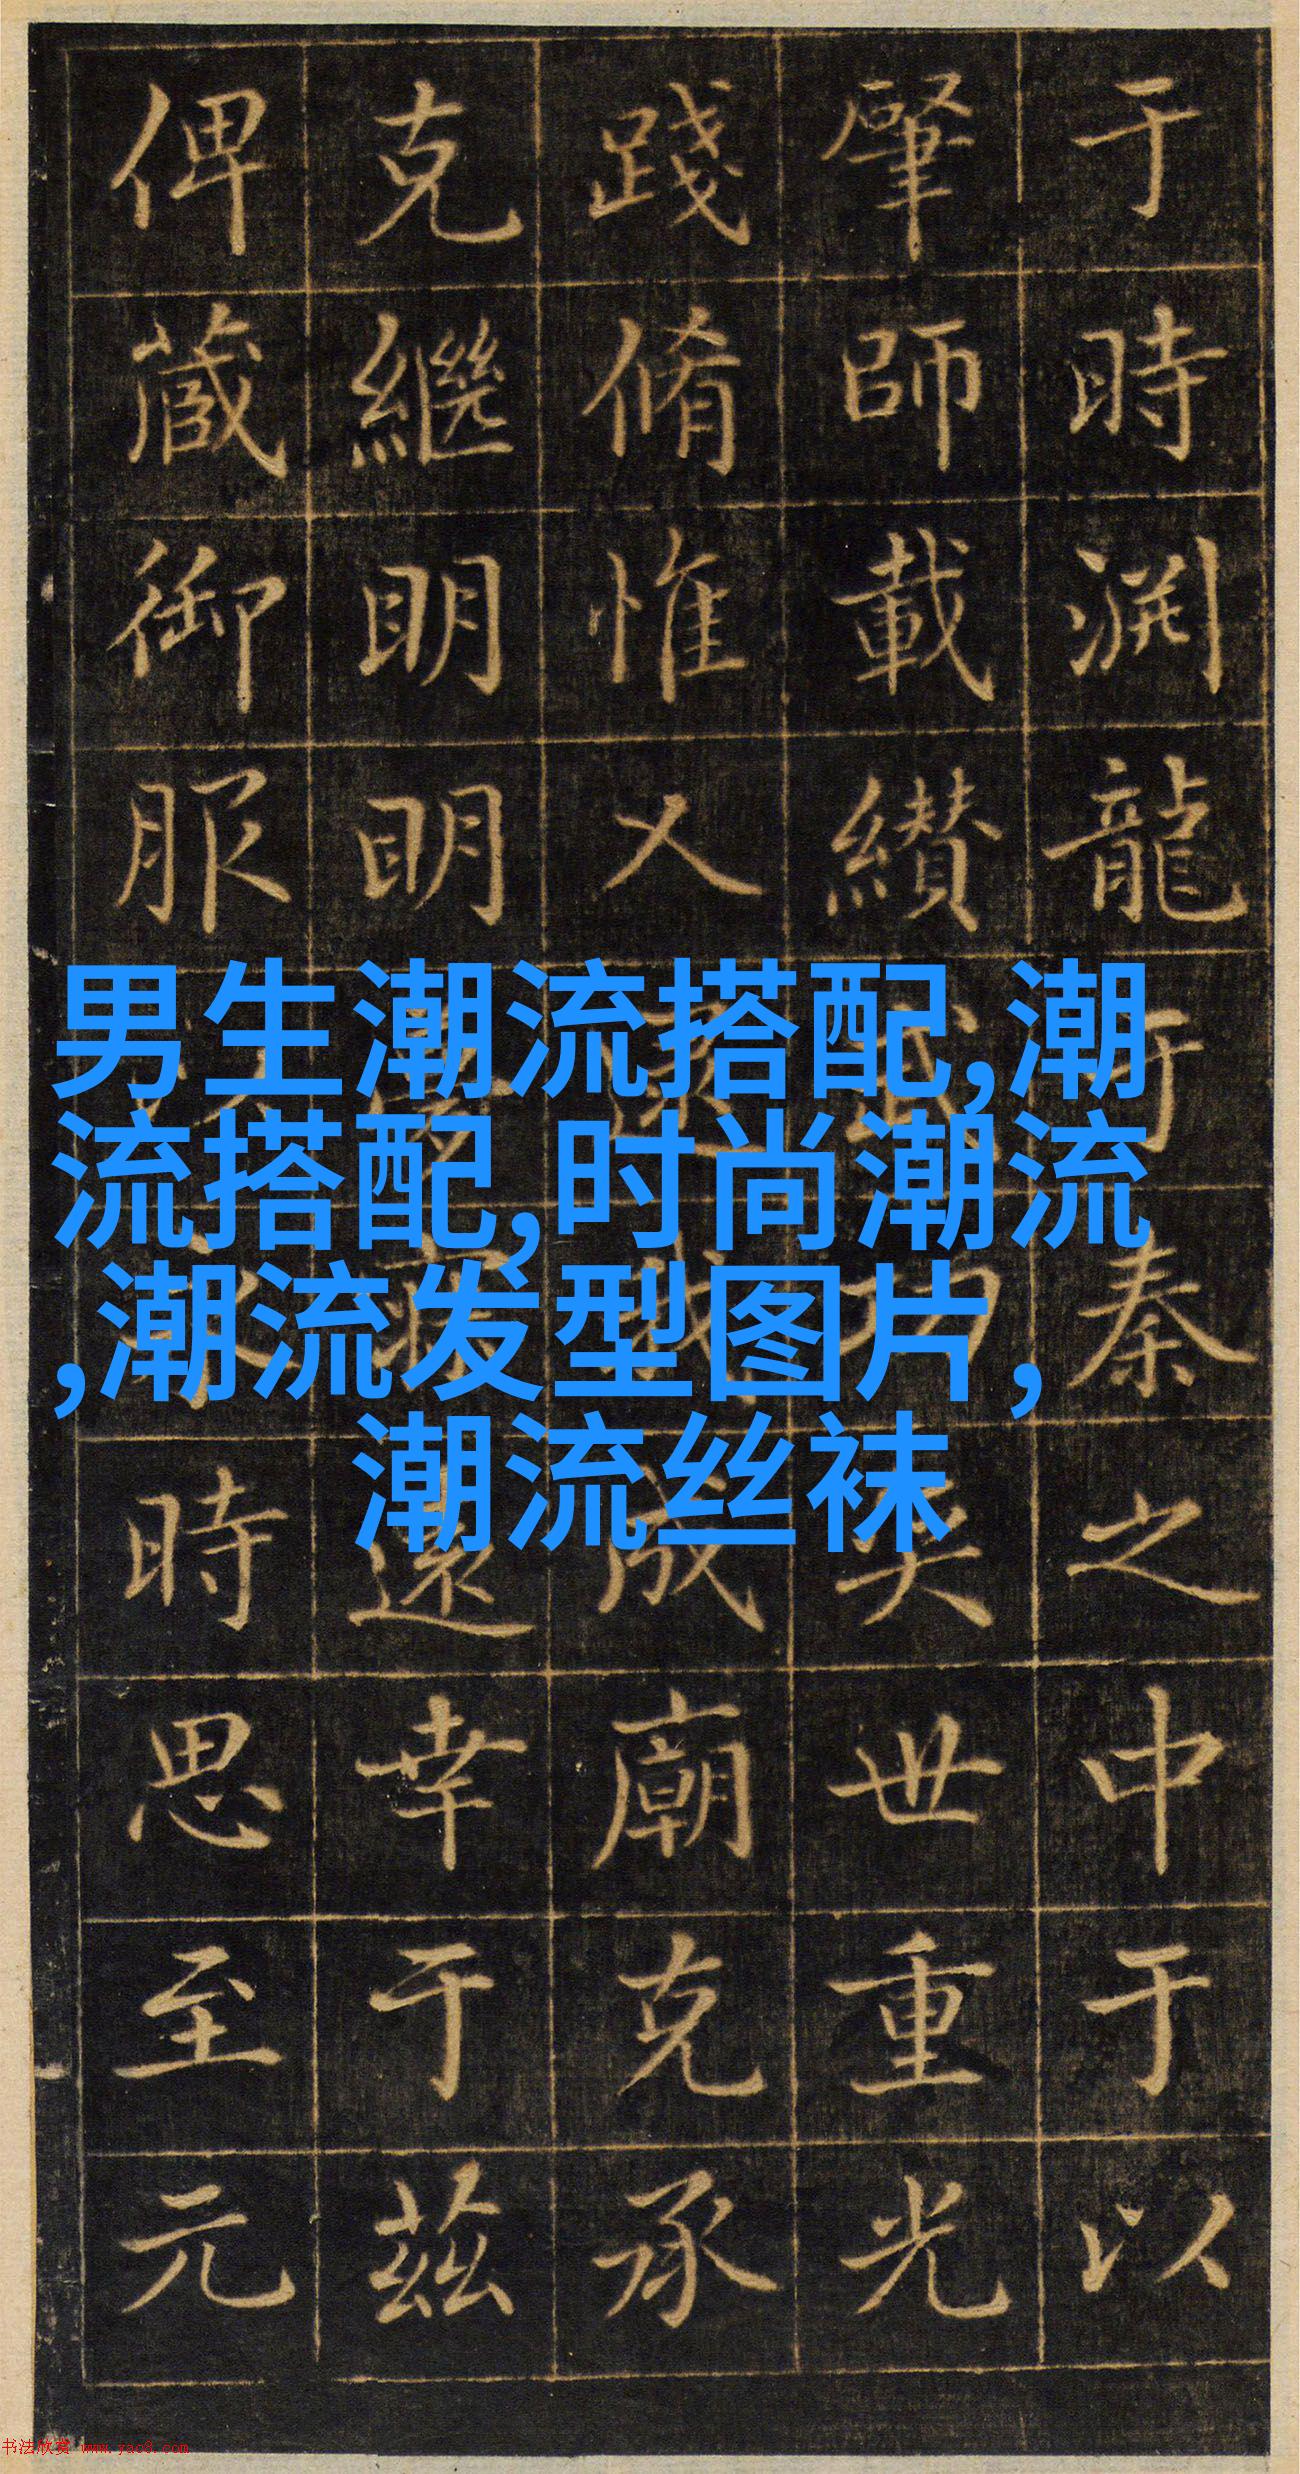 于時渕龍于秦之中于以
肇師載纘武功奕世重光
踐脩惟乂成廟克承
克繼明明遠幸于茲
俾蔵御服時思至元
男生潮流搭配,潮
流搭配,时尚潮流
,潮流发型图片,
潮流丝袜
书法欣赏 www.yac8.com